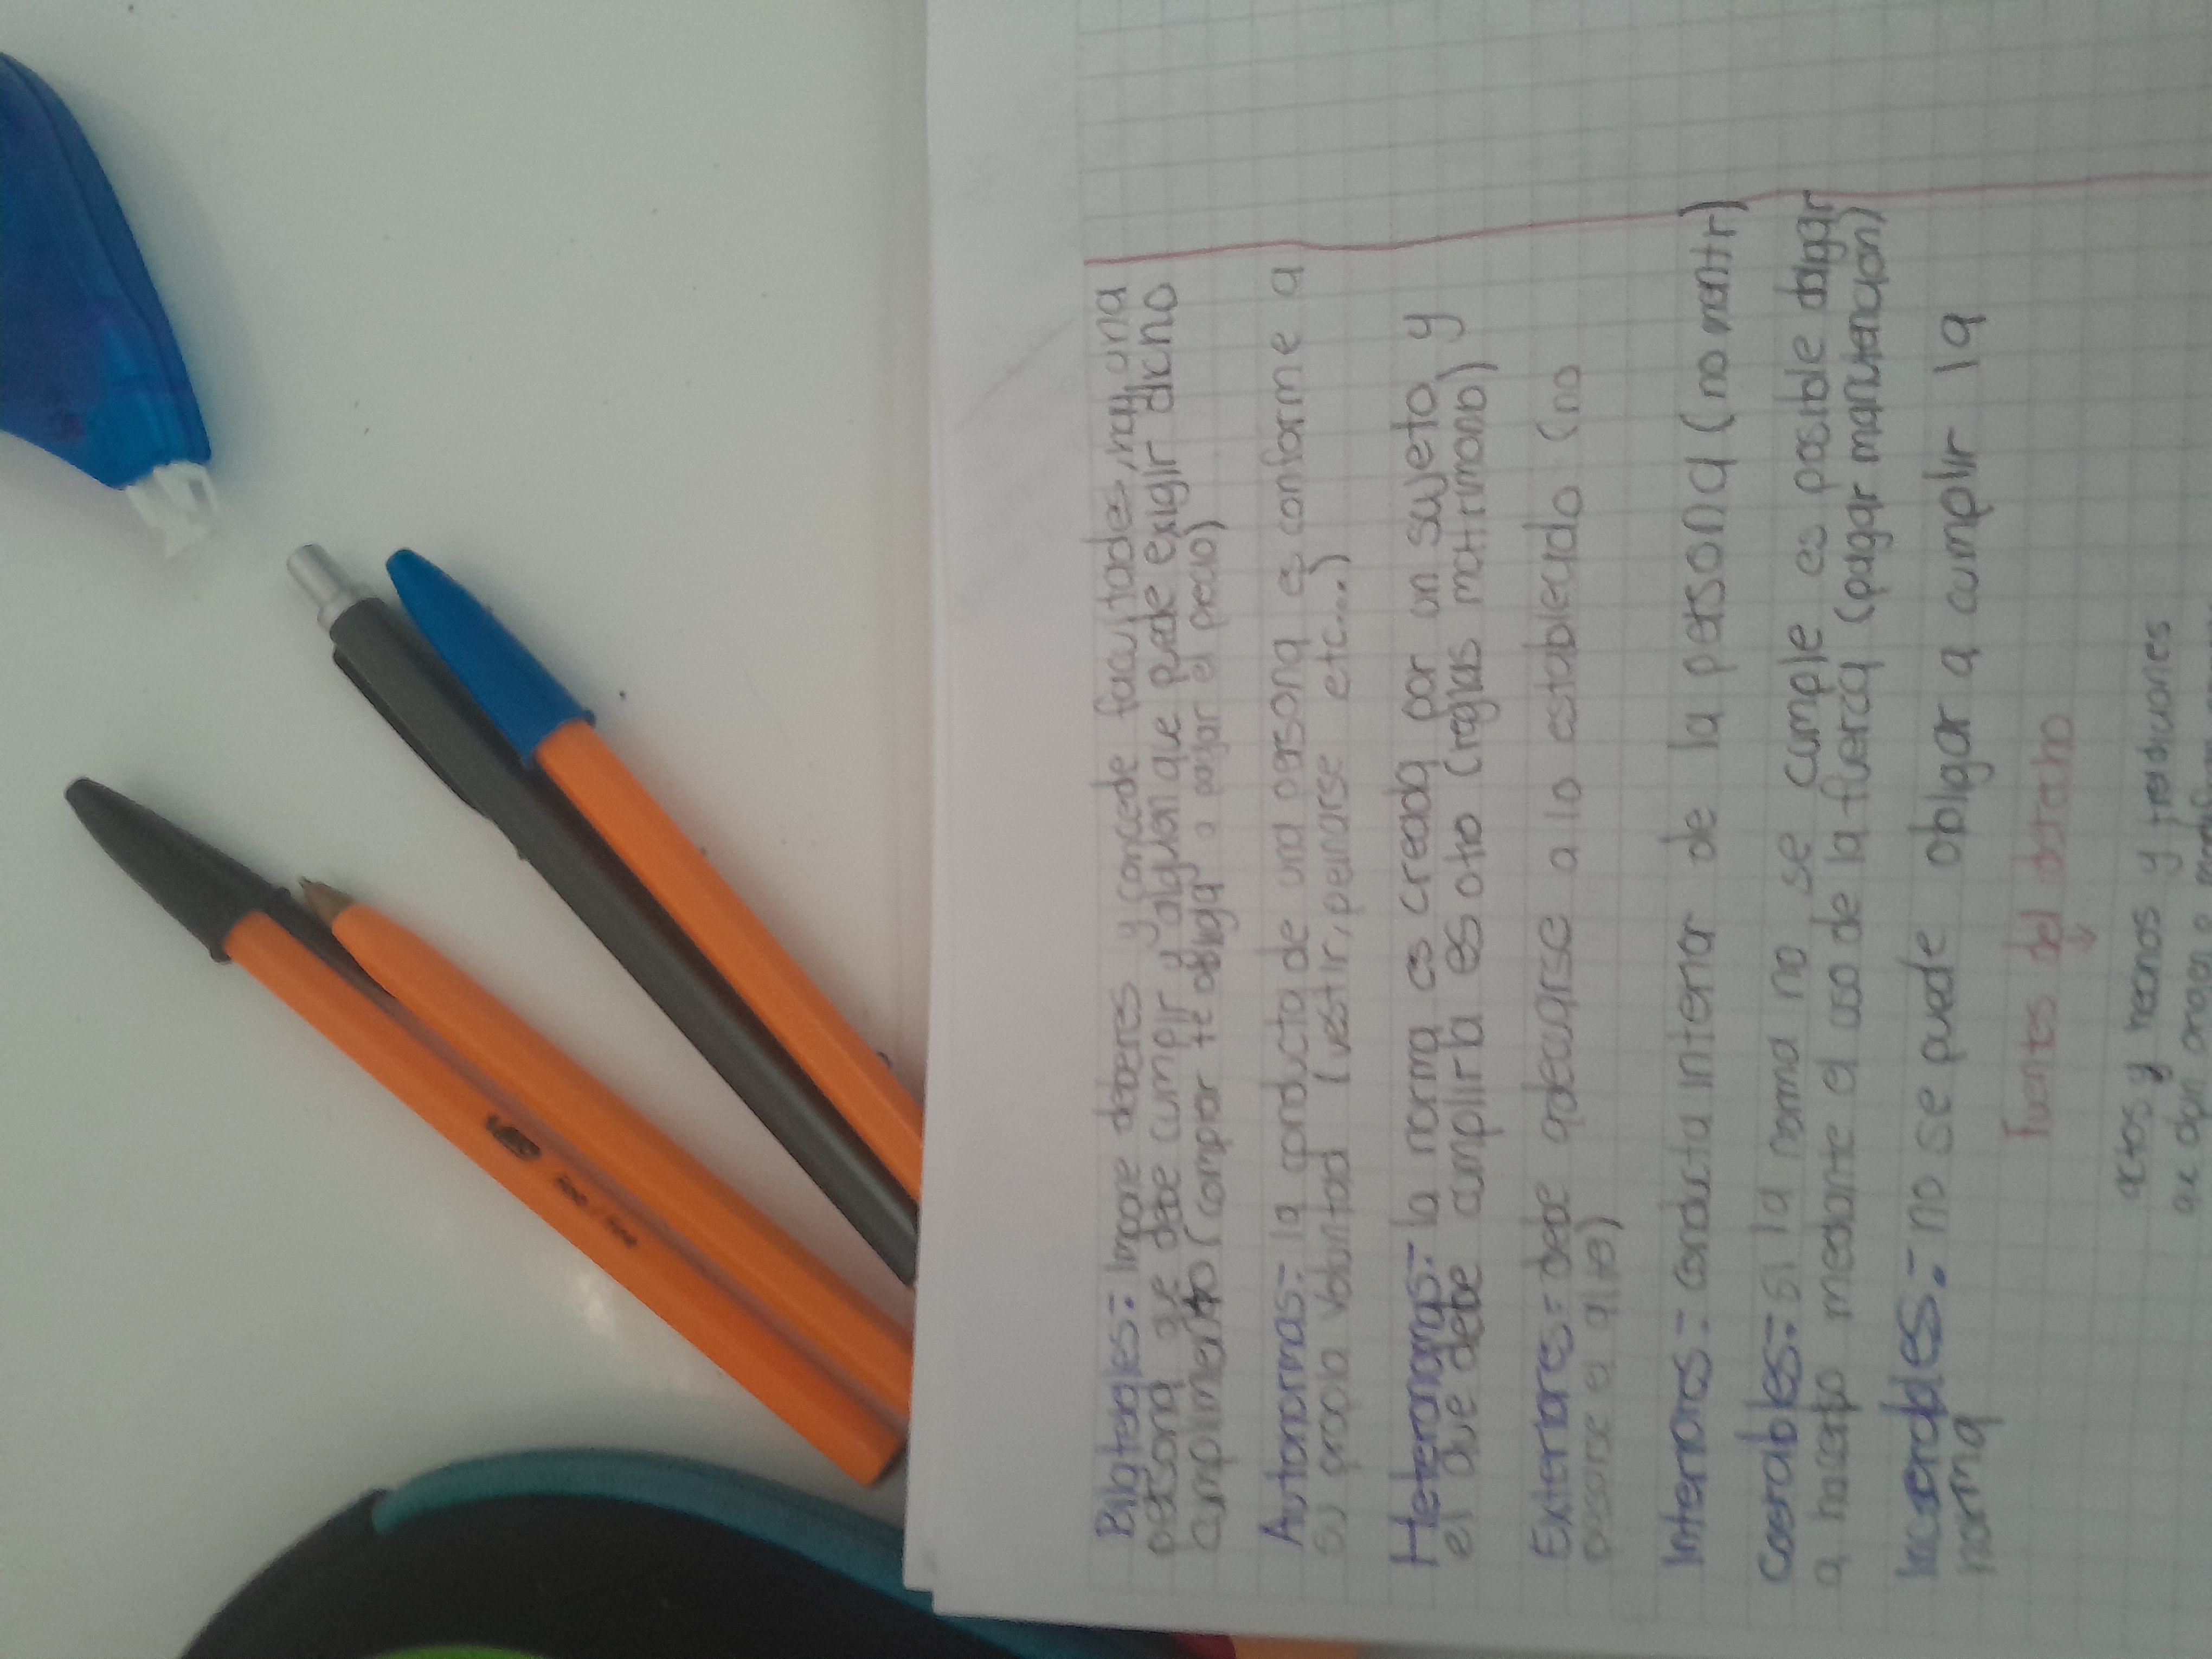 Bilaterales:- Impone deberes y concede facultades, hay una
persona que debe cumplir y alguien que puede exigir dicho
cumplimiento (comprar te obliga a pagar el precio)
Autonomas:- la conducta de una persona es conforme a
su propia voluntad (vestir, peinarse etc....)
Heteronomas:- la norma es creada por un sujeto y
el que debe cumplirla es otro (reglas matrimonio)
Exteriores:- debe adecuarse a lo establecido (no
pasarse el alto)
Interiores:- conducta interior de la persona (no mentir)
Coerables:- si la norma no se cumple es posible obligar
a hacerlo mediante el uso de la fuerza (pagar manutencion)
Incoerables:- no se puede obligar a cumplir la
norma
Fuentes del derecho
↓
actos y hechos y tradiciones
que dan origen a
BIC